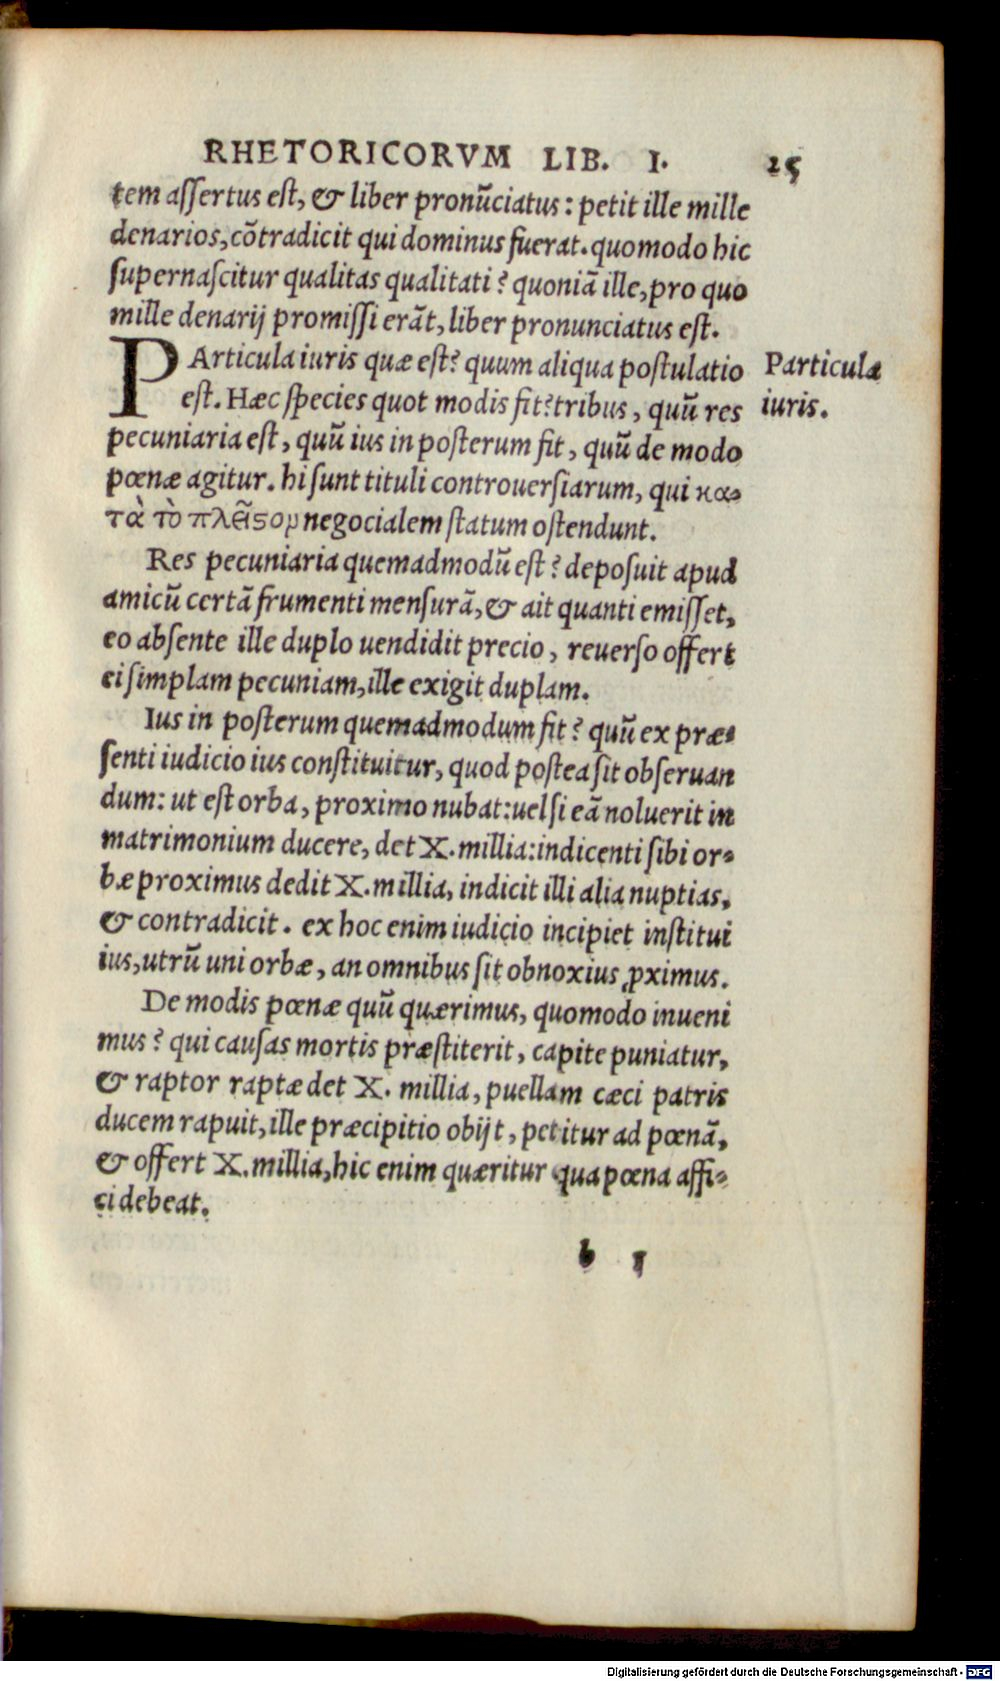 RHETORICORVM LIB. I. 25
tem assertus est, & liber pronũciatus: petit ille mille
denarios, cõtradicit qui dominus fuerat. quomodo hic
supernascitur qualitas qualitati? quoniã ille, pro quo
mille denarij promissi erãt, liber pronunciatus est.
PArticula iuris quæ est? quum aliqua postulatio
Particula
est. Hæc species quot modis fit? tribus, quũ res
iuris.
pecuniaria est, quũ ius in posterum fit, quũ de modo
pœnæ agitur. hi sunt tituli controuersiarum, qui κα-
τὰ τὸ πλεῖϛον negocialem statum ostendunt.
Res pecuniaria quemadmodũ est? deposuit apud
amicũ certã frumenti mensurã, & ait quanti emisset,
eo absente ille duplo uendidit precio, reuerso offert
ei simplam pecuniam, ille exigit duplam.
Ius in posterum quemadmodum fit? quũ ex præ-
senti iudicio ius constituitur, quod postea sit obseruan
dum: ut est orba, proximo nubat: uel si eã noluerit in
matrimonium ducere, det X. millia: indicenti sibi or-
bæ proximus dedit X. millia, indicit illi alia nuptias,
& contradicit. ex hoc enim iudicio incipiet institui
ius, utrũ uni orbæ, an omnibus sit obnoxius ꝓximus.
De modis pœnæ quũ quærimus, quomodo inueni
mus? qui causas mortis præstiterit, capite puniatur,
& raptor raptæ det X. millia, puellam cæci patris
ducem rapuit, ille præcipitio obijt, petitur ad pœnã,
& offert X. millia, hic enim quæritur qua pœna affi-
ci debeat.
b 1
Digitalisierung gefördert durch die Deutsche Forschungsgemeinschaft - DFG